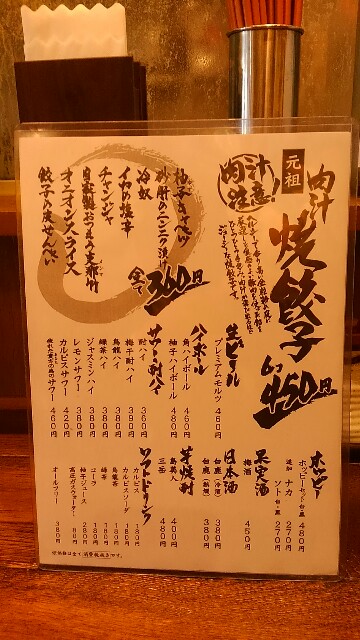 元祖
肉汁
焼餃子
6コ
450円
肉汁
注意!
柚子キャベツ
砂肝のニンニク漬け
冷奴
イカの塩辛
チャンジャ
自家製おつまみ支那竹
オニオンスライス
餃子の皮せんべい
全て360円
生ビール
プレミアムモルツ 460円
ハイボール
角ハイボール 460円
柚子ハイボール 480円
サワー・酎ハイ
酎ハイ 360円
梅干酎ハイ
烏龍ハイ 380円
緑茶ハイ 380円
ジャスミンハイ 380円
レモンサワー 380円
カルピスサワー 420円
サワー 460円
ホッピー
ホッピーセット 白・黒 480円
追加 ナカ 270円
ソト 白・黒 270円
果実酒
梅酒 450円
日本酒
白鹿(冷酒) 380円
白鹿(熱燗) 380円
芋焼酎
島美人 400円
三岳 480円
ソフトドリンク
カルピス 180円
カルピスソーダ 180円
烏龍茶 180円
緑茶 180円
コーラ 180円
柚子ジュース 280円
高圧ガスウォーター 80円
オールフリー 380円
※価格は全て消費税込です。